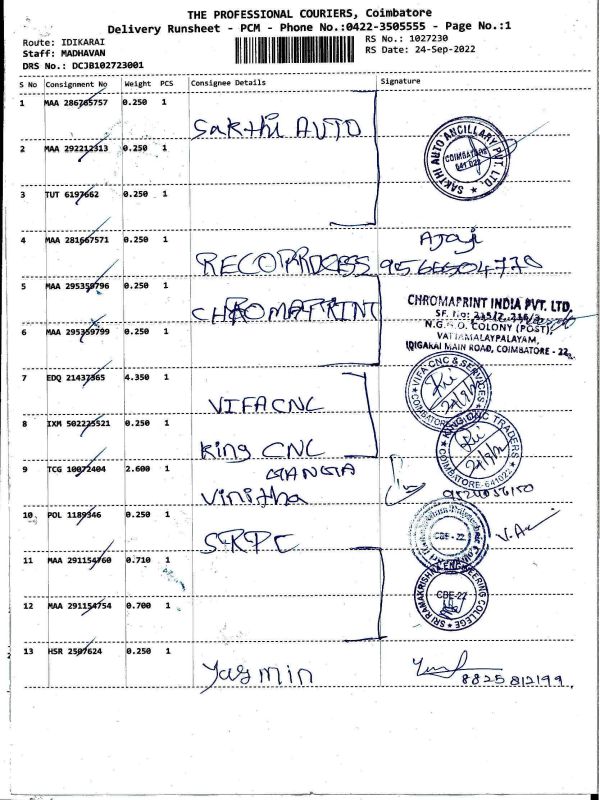 THE PROFESSIONAL COURIERS, Coimbatore
Delivery Runsheet - PCM - Phone No.:0422-3505555 - Page No.:1
Route: IDIKARAI RS No.: 1027230
Staff: MADHAVAN RS Date: 24-Sep-2022
DRS No.: DCJB102723001
S No Consignment No Weight PCS Consignee Details Signature
1 MAA 286765757 0.250 1
Sakthi AUTO
SAKTHI AUTO ANCILLARY PVT. LTD.
COIMBATORE
641 022
2 MAA 292212313 0.250 1
3 TUT 6197662 0.250 1
4 MAA 281667571 0.250 1
RECOPROCESS
5 MAA 295359796 0.250 1
CHROMAPRINT
CHROMAPRINT INDIA PVT. LTD.
N.G.G.O. COLONY (POST),
VATTAMALAYPALAYAM,
IDIGARAI MAIN ROAD, COIMBATORE - 22.
6 MAA 295359799 0.250 1
7 EDQ 21437365 4.350 1
VIFA CNC
VIFA CNC & SERVICES
COIMBATORE
8 IXM 502225521 0.250 1
King CNC
KING CNC TRADERS
COIMBATORE-641022
9 TCG 10072404 2.600 1
Vinitha
10 POL 1189346 0.250 1
SRPC
CBE - 22
11 MAA 291154760 0.710 1
SRI RAMAKRISHNA ENGINEERING COLLEGE
CBE-22
12 MAA 291154754 0.700 1
13 HSR 2507624 0.250 1
Yasmin
8825812199